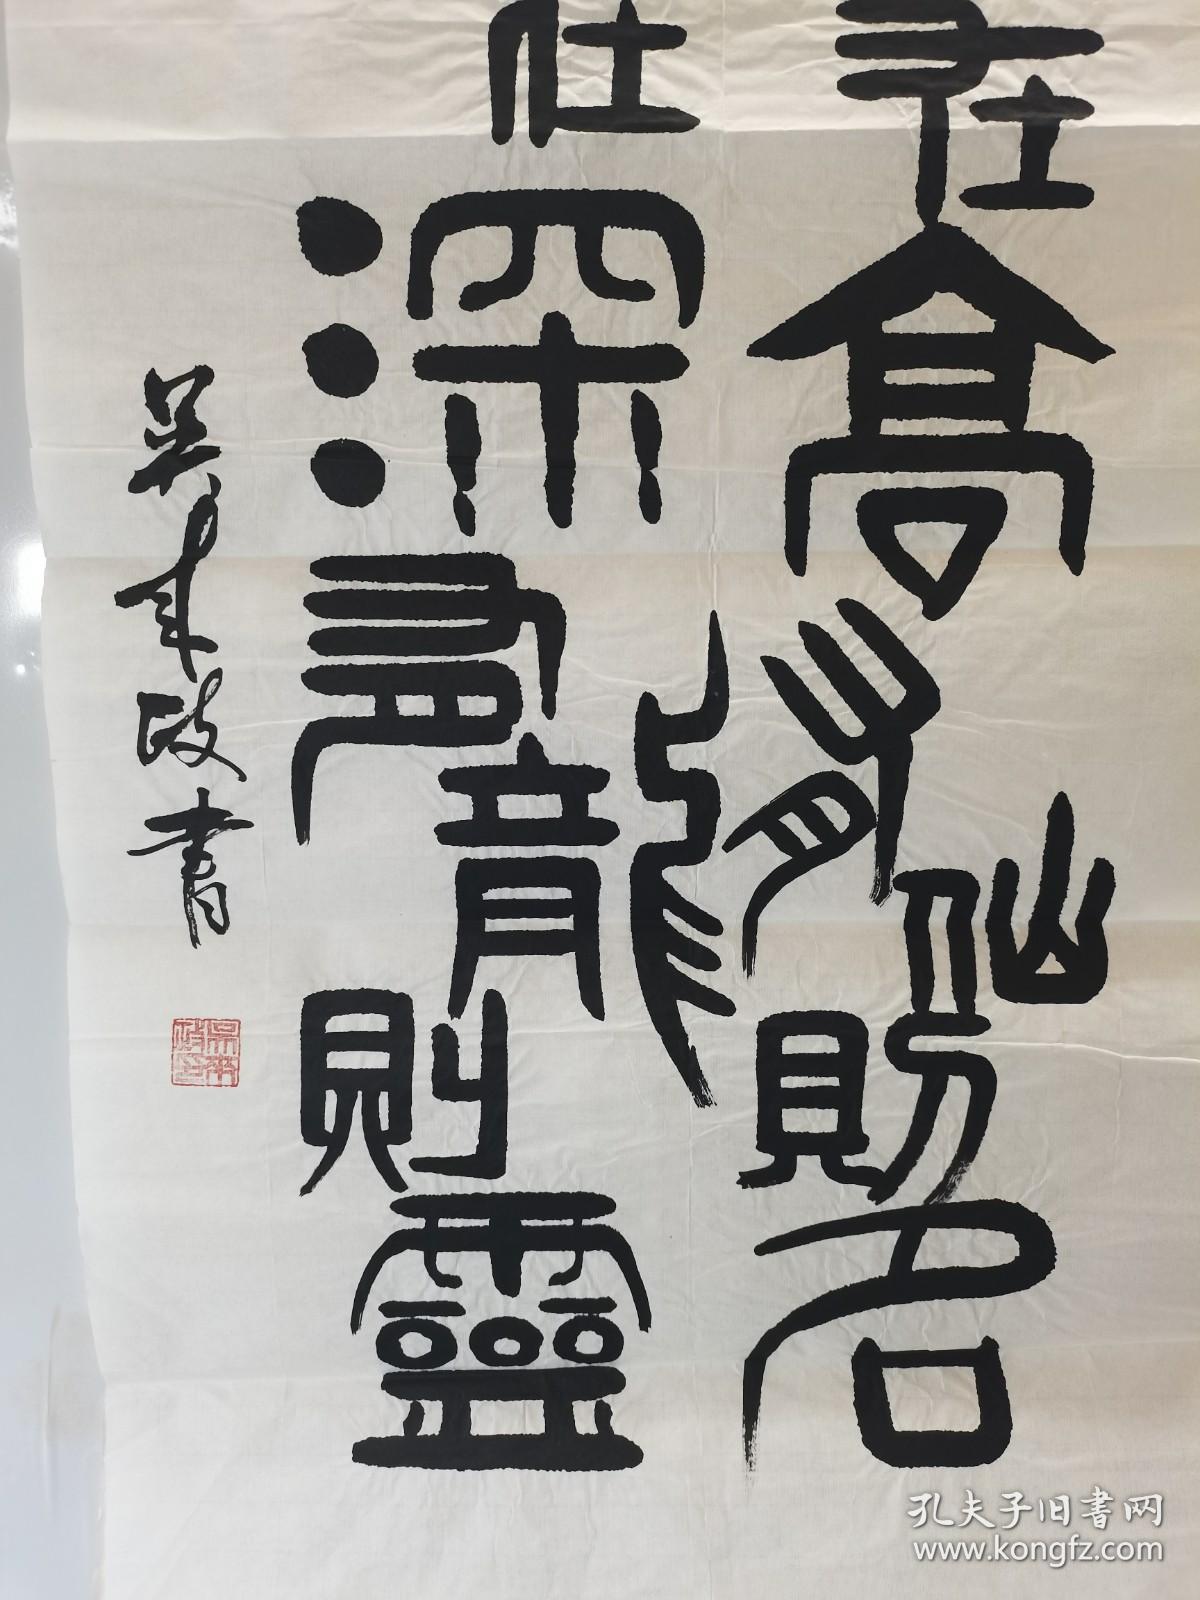 在高有仙則名
在深有龍則靈
吴來政書
吴來政印
孔夫子旧書网
www.kongfz.com